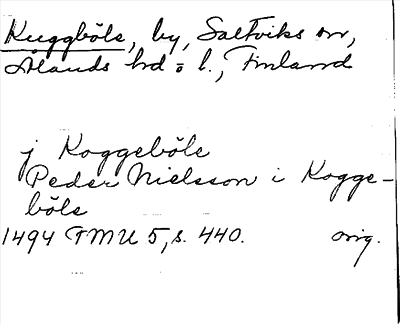 Kuggböle, by, Saltviks sn,
Ålands hd o l., Finland
j Koggeböle
Peder Nielsson i Kogge-
böle
1494 FMU 5, s. 440. orig.